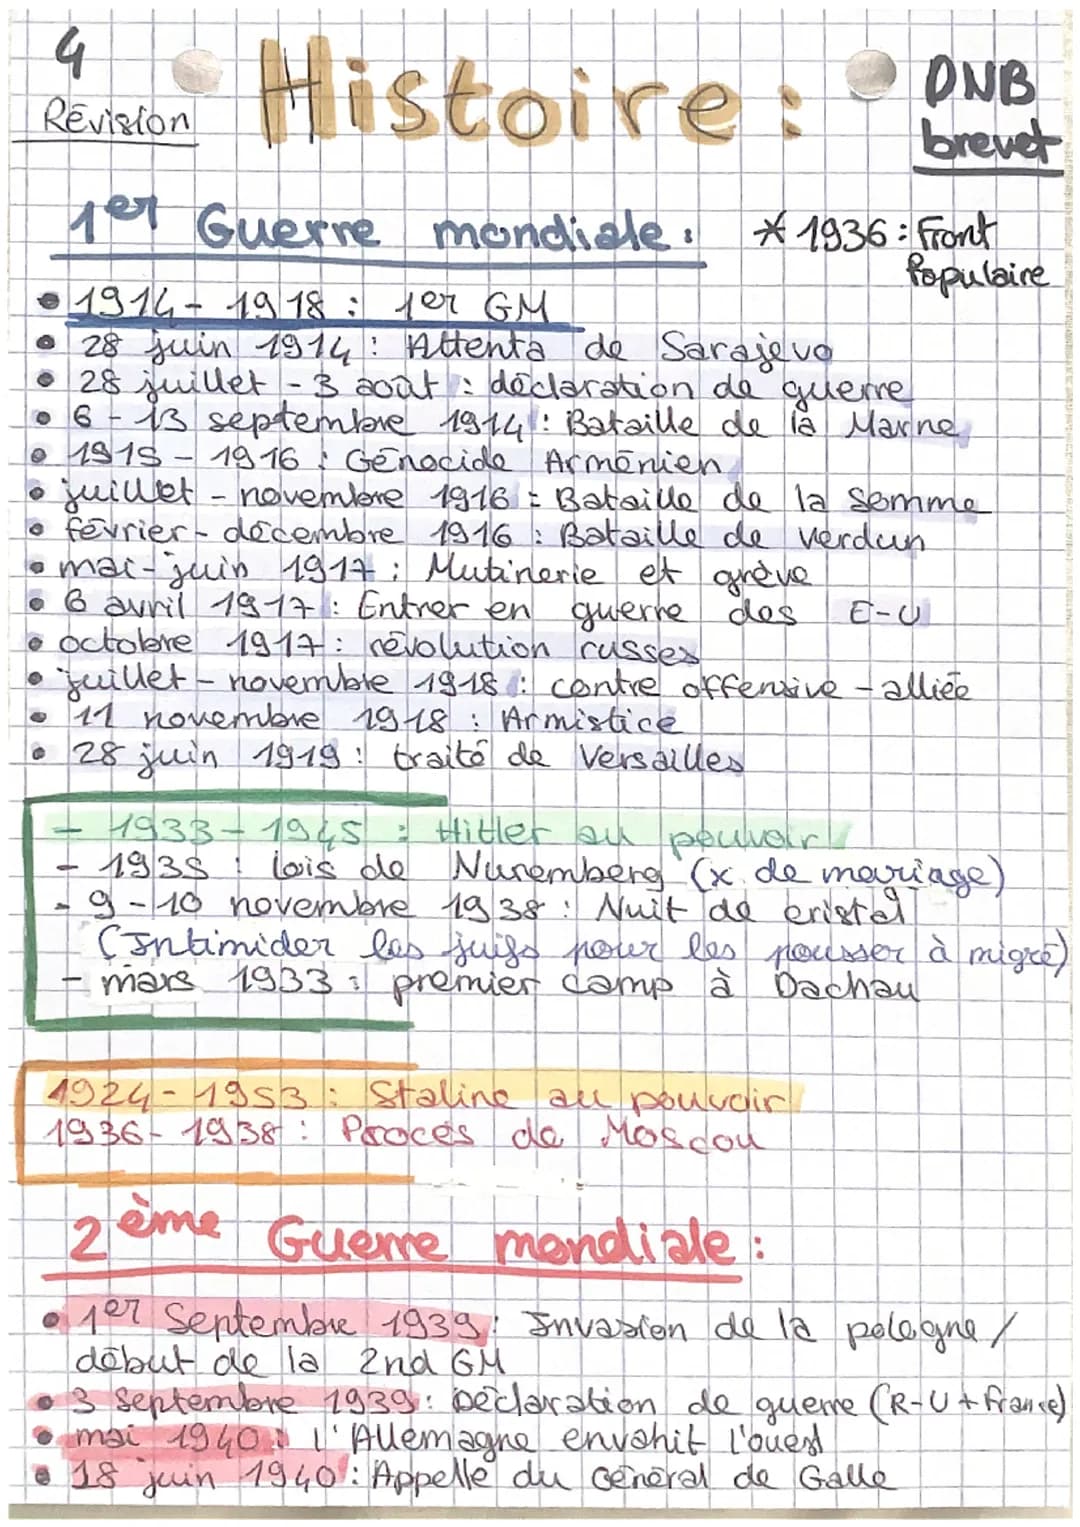 4
Révision
Histoire :
DNB
brevet
1er Guerre mondiale :
* 1936 : Front
Populaire
• 1914 - 1918 : 1er GM
• 28 juin 1914 : Attenta de Sarajevo
• 28 juillet - 3 août : déclaration de guerre
• 6 - 13 septembre 1914 : Bataille de la Marne
• 1915 - 1916 : Génocide Arménien
• juillet - novembre 1916 : Bataille de la Somme
• février - décembre 1916 : Bataille de Verdun
• mai - juin 1917 : Mutinerie et grève
• 6 avril 1917 : Entrer en guerre des E-U
• octobre 1917 : révolution russes
• juillet - novembre 1918 : contre offensive - alliée
• 11 novembre 1918 : Armistice
• 28 juin 1919 : traité de Versailles
- 1933 - 1945 : Hitler au pouvoir
- 1935 : lois de Nuremberg (x de mariage)
- 9 - 10 novembre 1938 : Nuit de cristal
(Intimider les juifs pour les pousser à migré)
- mars 1933 : premier camp à Dachau
1924 - 1953 : Staline au pouvoir
1936 - 1938 : Procès de Moscou
2ème Guerre mondiale :
• 1er Septembre 1939 : Invasion de la pologne /
début de la 2nd GM
• 3 septembre 1939 : Déclaration de guerre (R-U + France)
• mai 1940 : l'Allemagne envahit l'ouest
• 18 juin 1940 : Appelle du Général de Galle